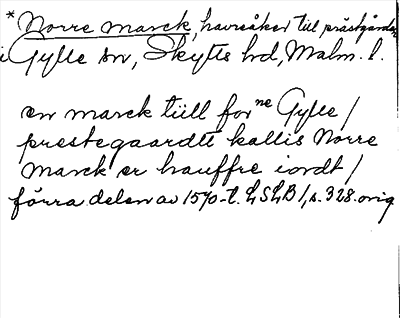 * Norre marck, havreåker till prästgården
i Gylle sn, Skytts hd, Malm. l.
en marck tiill for ne Gylle /
prestegaardtt kallis Norre
Marck er hauffre iordt /
förra delen av 1570-t. LSLB 1, s. 328. orig